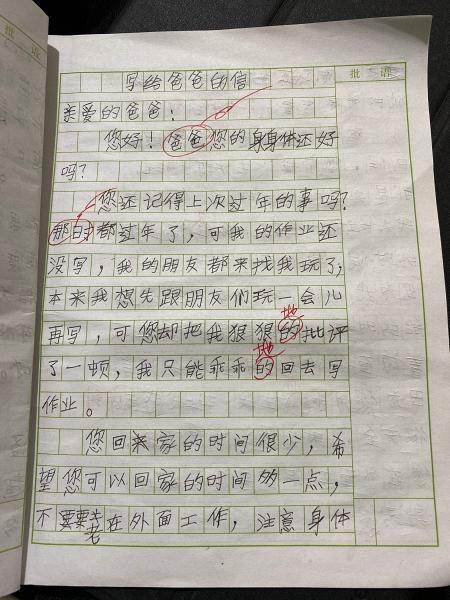 批语
写给爸爸的信
亲爱的爸爸：
您好！爸爸您的身体还好
吗？
您还记得上次过年的事吗？
那时都过年了，可我的作业还
没写，我的朋友都来找我玩了，
本来我想先跟朋友们玩一会儿
地
再写，可您却把我狠狠的批评
地
了一顿，我只能乖乖的回去写
作业。
您回来家的时间很少，希
望您可以回家的时间多一点，
不要老在外面工作，注意身体